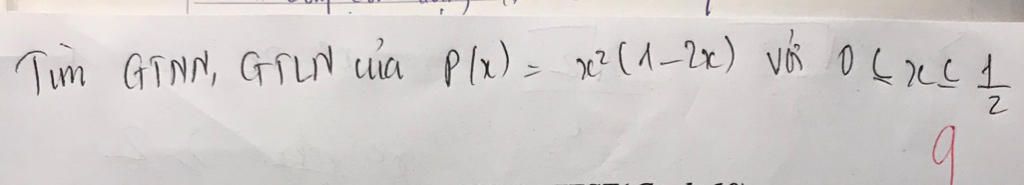 Tìm GTNN, GTLN của P(x) = x²(1-2x) với 0 ≤ x ≤ 1/2
9